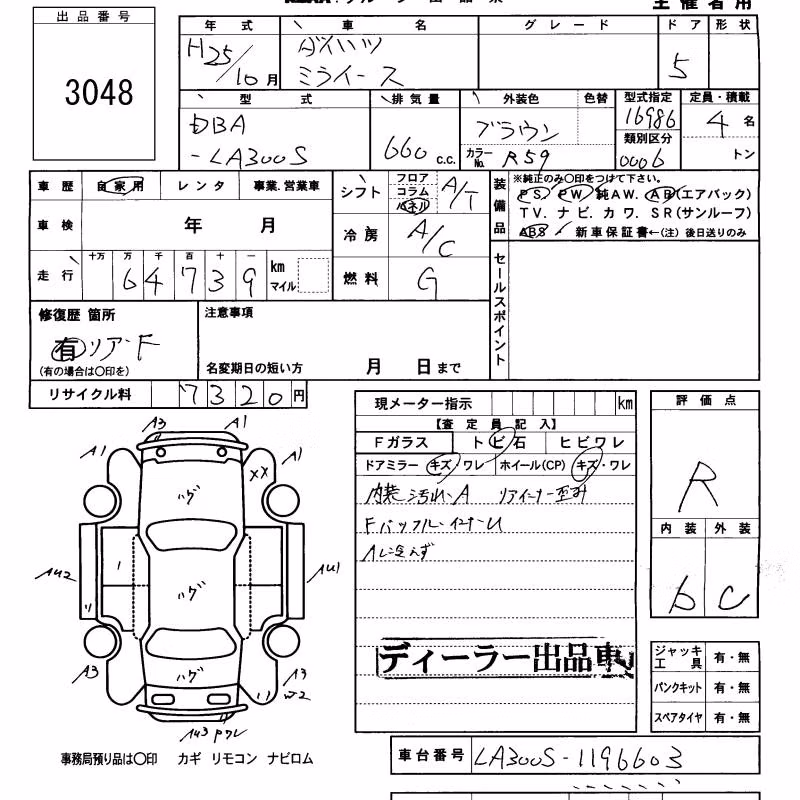 主催者用
出品番号
3048
年式 車名 グレード ドア 形状
H25/10月 ダイハツ ミライース 5
型式 排気量 外装色 色替 型式指定 定員・積載
DBA -LA300S 660 c.c. ブラウン 16986 4名
カラーNo. R59 類別区分 0006 トン
車歴 自家用 レンタ 事業.営業車
車検 年 月
走行 十万 万 千 百 十 一 km マイル
64739
シフト フロア コラム パネル A/T
冷房 A/C
燃料 G
装備品
※純正のみ○印をつけて下さい。
PS. PW. 純AW. AB(エアバック)
TV. ナビ. カワ. SR(サンルーフ)
ABS 新車保証書←(注) 後日送りのみ
セールスポイント
修復歴 箇所
有 リアF
(有の場合は○印を)
注意事項
名変期日の短い方 月 日まで
リサイクル料 7320円
現メーター指示 km
【査定員記入】
Fガラス トビ石 ヒビワレ
ドアミラー キズ・ワレ ホイール(CP) キズ・ワレ
内装 汚れ、A リアインナー歪み
ディーラー出品車
評価点
R
内装 外装
b C
ジャッキ工具 有・無
パンクキット 有・無
スペアタイヤ 有・無
A3 A1
A1 A1
XX
ハゲ
AU2 ハゲ AU1
A3 ハゲ A3
W2
AU3 ワレ
事務局預り品は○印 カギ リモコン ナビロム
車台番号 LA300S-1196603